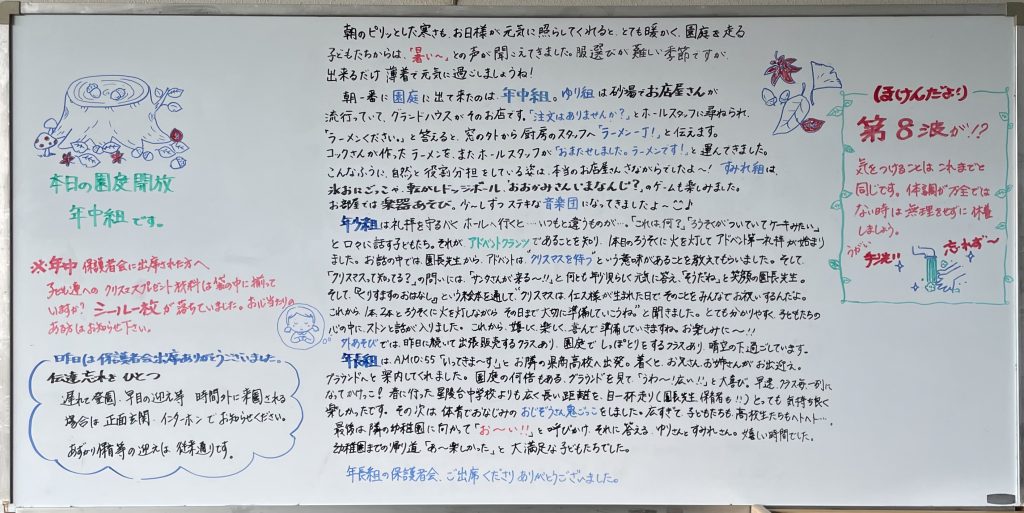 本日の園庭開放
年中組です。
※年中 保護者会に出席された方へ
子ども達への クリスマスプレゼント材料は 袋の中に揃って
いますか？ シール一枚が 落ちていました。お心当たりの
ある方は お知らせ下さい。
昨日は 保護者会出席ありがとうございました。
伝達忘れを ひとつ
遅れて登園、早目の迎え等 時間外に来園される
場合は 正面玄関 インターホンで お知らせください。
あずかり保育等の迎えは 従来通りです。
朝のピリッとした寒さも、お日様が元気に照らしてくれると、とても暖かく、園庭を走る
子どもたちからは、「暑い〜」との声が聞こえてきました。服選びが難しい季節ですが、
出来るだけ 薄着で元気に過ごしましょうね！
朝一番に園庭に出て来たのは、年中組。ゆり組は砂場でお店屋さんが
流行っていて、グランドハウスがそのお店です。「注文はありませんか？」とホールスタッフに尋ねられ、
「ラーメンください。」と答えると、窓の外から厨房のスタッフへ「ラーメン一丁！」と伝えます。
コックさんが作ったラーメンを、またホールスタッフが「おまたせしました。ラーメンです！」と運んできました。
こんなふうに、自然と役割分担をしている姿は、本当のお店屋さんさながらでしたよ〜！ すみれ組は、
氷おにごっこや、転がしドッジボール、「おおかみさんいまなんじ？」のゲームも楽しみました。
お部屋では 楽器あそび。少〜しずつステキな音楽団になってきましたよ〜♪
年少組は礼拝を守るべく ホールへ行くと…いつもと違うものが…。「これは何？」「ろうそくがついていてケーキみたい」
と口々に話す子どもたち。それが、アドベントクランツであることを知り、1本目のろうそくに火を灯して アドベント第一礼拝が始まり
ました。お話の中では、園長先生から、アドベントは「クリスマスを待つ」という意味があることを教えてもらいました。そして、
「クリスマスって知ってる？」の問いには、「サンタさんが来る〜！！」と元気に答え、「そうだね」と笑顔の園長先生。
そして、「くりすますのおはなし」という絵本を通して、「クリスマスは、イエス様が生まれた日で そのことをみんなでお祝いするんだよ。
これから 1本、2本とろうそくに火を灯しながら その日まで大切に準備していこうね」と聞きました。とても分かりやすく、子どもたちの
心の中にストンと話が入りました。これから、嬉しく、楽しく、喜んで準備していきますね。お楽しみに〜！！
外あそびでは、昨日に続いて出張販売するクラスあり、園庭で しっぽとりをするクラスあり、晴空の下過ごしています。
年長組は、AM10:55 「いってきま〜す」と お隣の県商高校へ出発。着くと、お兄さん、お姉さんが お出迎え。
グラウンドへと 案内してくれました。園庭の何倍もある、グラウンドを見て「うわ〜！広い！！」と大喜び。早速、クラス毎一列に
なってかけっこ！ 前に行った 星陵台中学校よりも 広く長い距離を、目一杯走り（園長先生、保護者も！！）とっても 気持ち良く
楽しかったです。その次は 体育でおなじみの おじぞうさん鬼ごっこをしました。広すぎて、子どもたちも 高校生たちもヘトヘト…
最後は 隣の幼稚園に向かって「お〜い！！」と呼びかけ、それに答える、ゆりさんとすみれさん。嬉しい時間でした。
幼稚園までの帰り道「あ〜楽しかった」と 大満足な子どもたちでした。
年長組の保護者会、ご出席くださり ありがとうございました。
（ほけんだより）
第8波が！？
気をつけることは これまでと
同じです。体調が万全では
ない時は 無理をせずに 休養
しましょう。
うがい
手洗い
忘れず〜